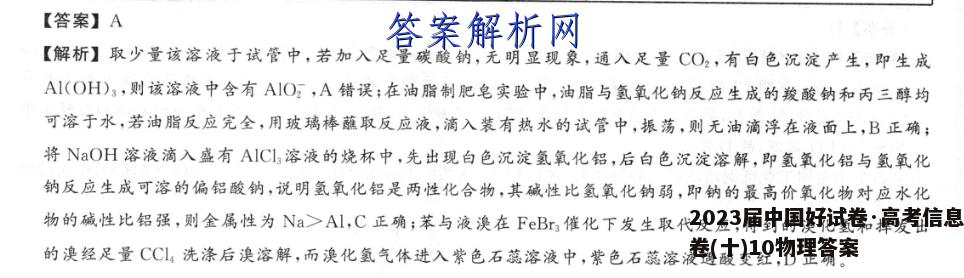 【答案】A
答案解析网
【解析】取少量该溶液于试管中,若加入足量碳酸钠,无明显现象,通入足量 CO₂,有白色沉淀产生,即生成
Al(OH)₃,则该溶液中含有 AlO₂⁻,A 错误;在油脂制肥皂实验中,油脂与氢氧化钠反应生成的羧酸钠和丙三醇均
可溶于水,若油脂反应完全,用玻璃棒蘸取反应液,滴入装有热水的试管中,振荡,则无油滴浮在液面上,B 正确;
将 NaOH 溶液滴入盛有 AlCl₃溶液的烧杯中,先出现白色沉淀氢氧化铝,后白色沉淀溶解,即氢氧化铝与氢氧化
钠反应生成可溶的偏铝酸钠,说明氢氧化铝是两性化合物,其碱性比氢氧化钠弱,即钠的最高价氧化物对应水化
物的碱性比铝强,则金属性为 Na>Al,C 正确;苯与液溴在 FeBr₃催化下发生取代
2023届中国好试卷·高考信息
卷(十)10物理答案
的溴经足量 CCl₄ 洗涤后溴溶解,而溴化氢气体进入紫色石蕊溶液中,紫色石蕊溶液